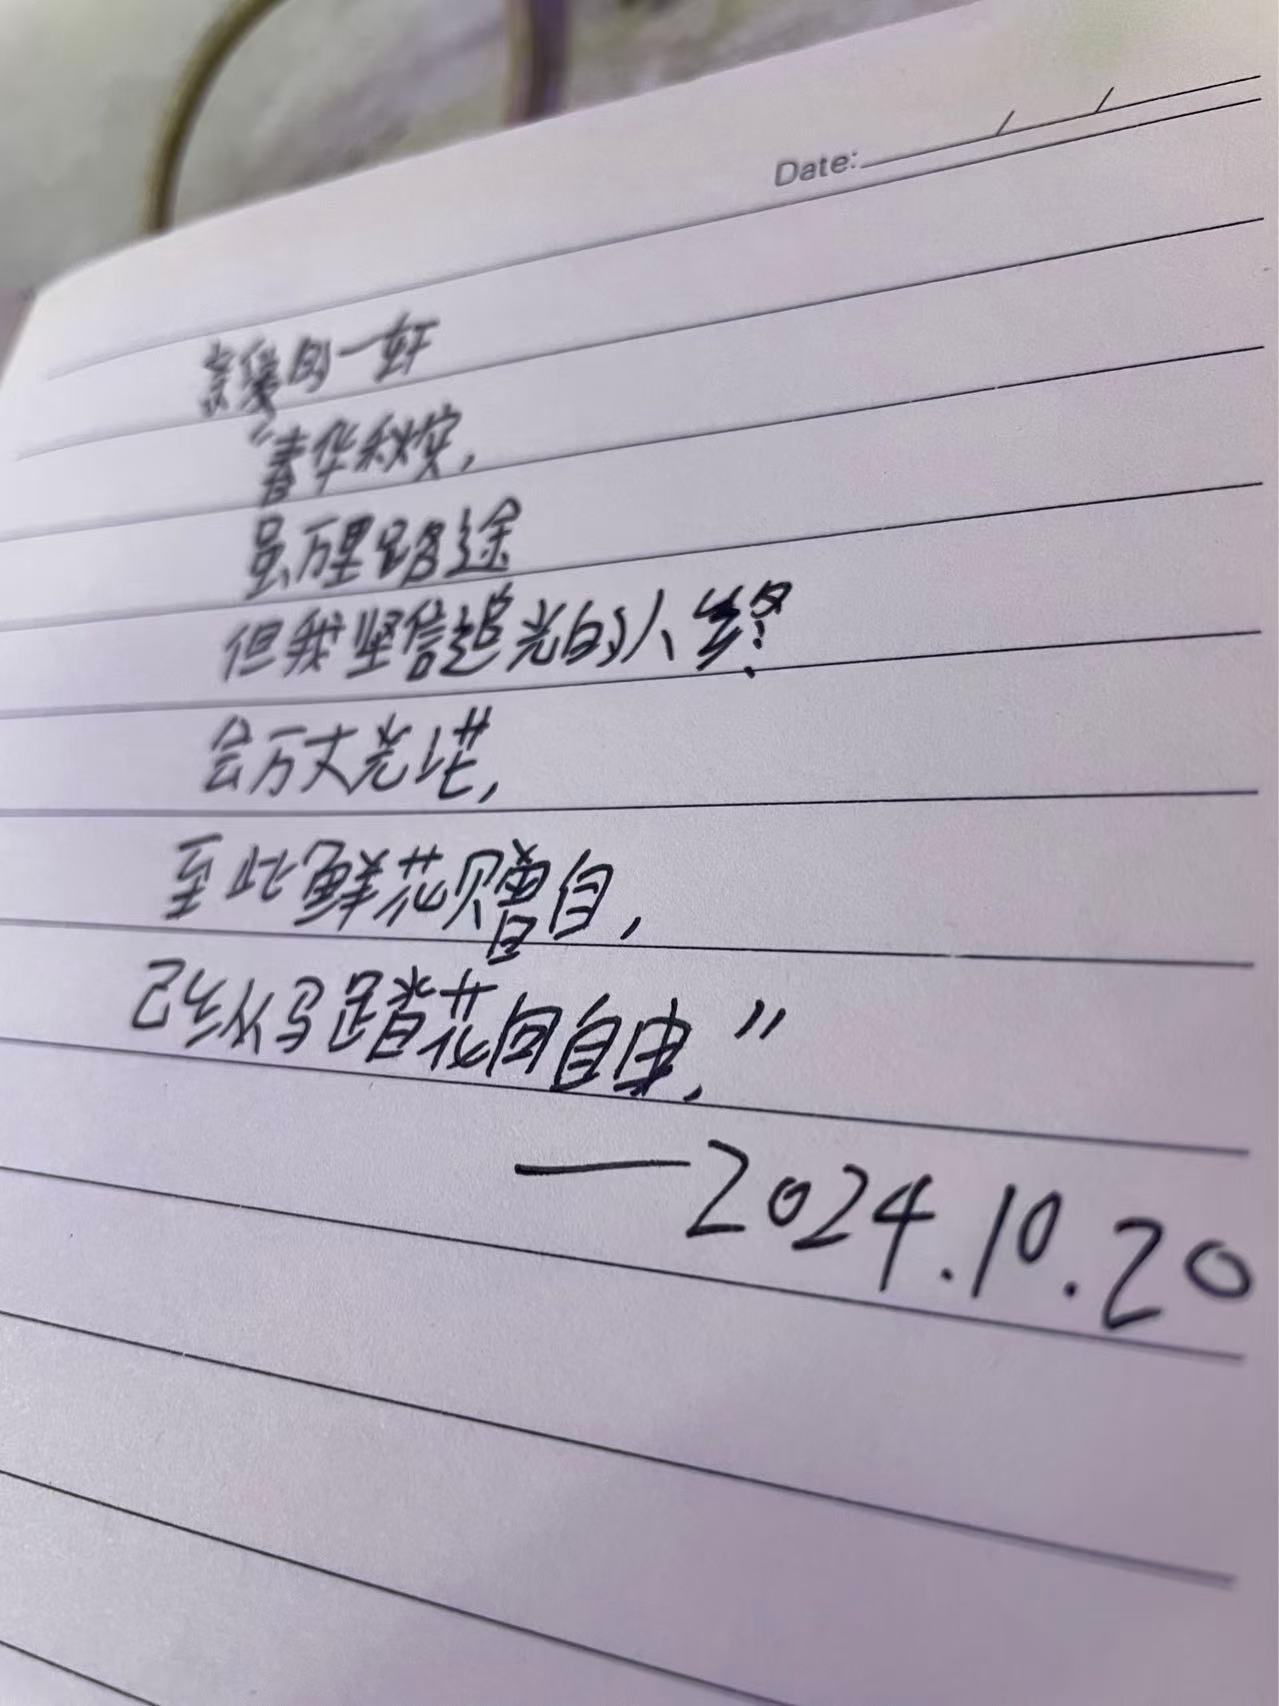 Date: / /
亲爱的一轩
“春华秋实,
虽万里路途
但我坚信追光的人终
会万丈光芒,
至此鲜花赠自,
己纵马踏花向自由.”
——2024.10.20